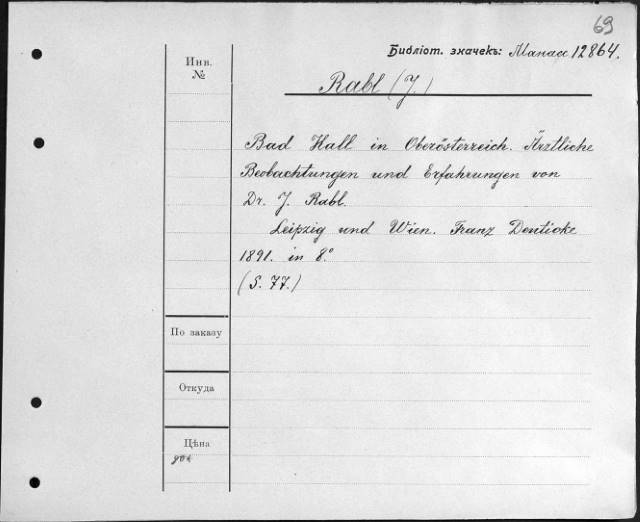 69
Библіот. значекъ: Манасс 12864.
Инв.
№
Rabl (J.)
Bad Hall in Oberösterreich. Ärztliche
Beobachtungen und Erfahrungen von
Dr. J. Rabl.
Leipzig und Wien. Franz Denticke
1891. in 8.°
(S. 77.)
По заказу
Откуда
Цѣна